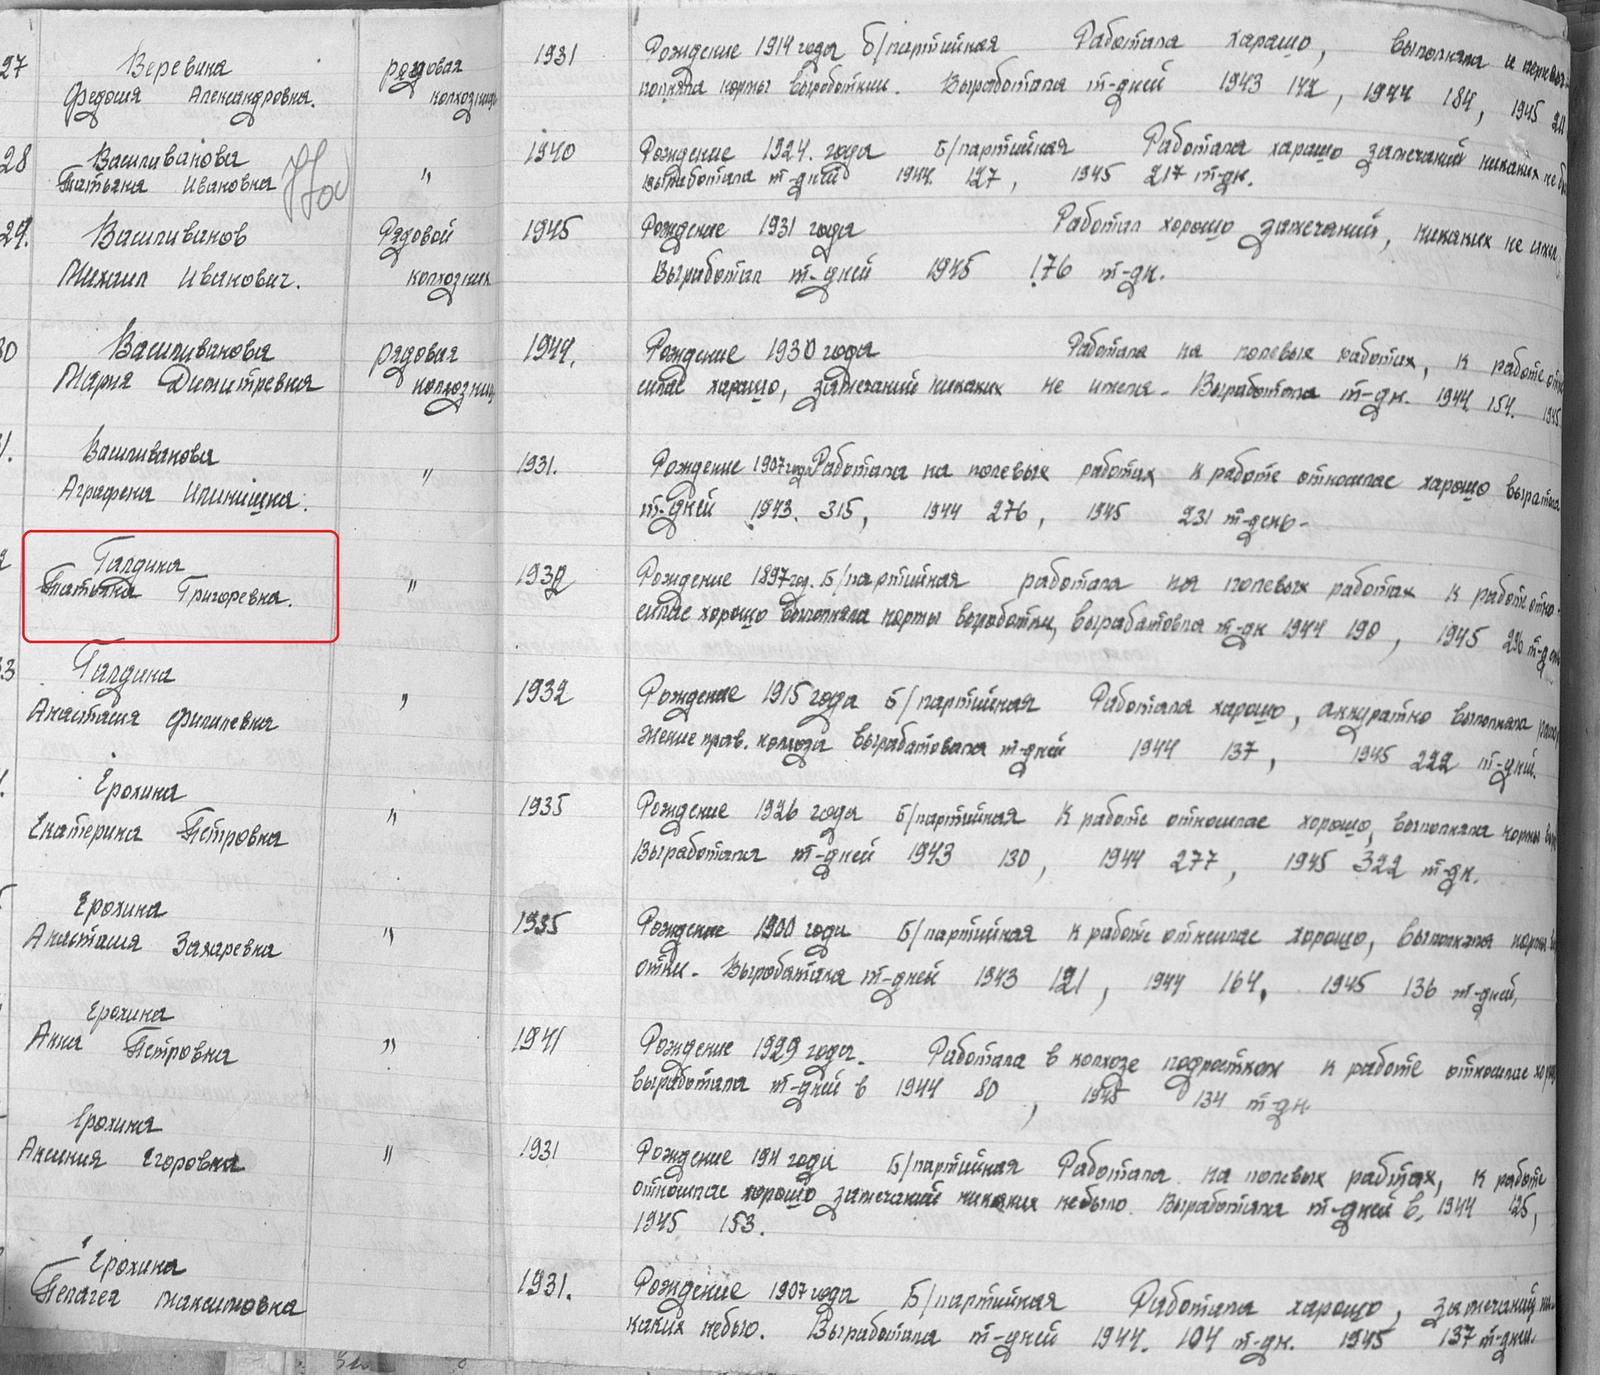 27 Веревина рядовая 1931 Рождение 1914 года Б/партийная Работала харашо, выполняла и перевы
Федосия Александровна. колхозница полняла нормы выроботки. Выработала т-дней 1943 142, 1944 184, 1945 211
28 Василиванова " 1940 Рождение 1924. года Б/партийная Работала харашо замечаний никаких не бы
Татьяна Ивановна выработала т-дней 1944. 127, 1945 217 т-дн.
29. Василиванов Рядовой 1945 Рождение 1931 года Работал хорошо замечаний, никаких не имел,
Михаил Иванович. колхозник Выработал т-дней 1945 176 т-дн.
30 Василиванова рядовая 1944. Рождение 1930 года Работала на полевых работах, к работе отно
Мария Дмитревна колхозниц силас харашо, замечаний никаких не имела. Выработала т-дн. 1944. 154. 1945
1. Василиванова " 1931. Рождение 1907 года Работала на полевых работах к работе относилас харашо
Аграфена Илинишна. т-дней 1943. 315, 1944 276, 1945 231 т-день-
2 Галдина " 1932 Рождение 1897 год. Б/партийная работала на полевых работах к работе отно-
Татьяна Григоревна. силас хорошо выполняла нормы выработки, вырабатовла т-дн 1944 190, 1945 236 т-день
33 Галдина " 1932 Рождение 1915 года Б/партийная Работала харашо, аккуратно выполняла распор
Анастасия Филипевна жение прав. колхоза вырабатовала т-дней 1944 137, 1945 222 т-дней.
Ерохина " 1935 Рождение 1926 года Б/партийная К работе относилас хорошо, выполняла нормы выр
Екатерина Петровна Выработала т-дней 1943 130, 1944 277, 1945 322 т-дн.
Ерохина " 1935 Рождение 1900 года Б/партийная К работе относилас хорошо, выполняла нормы
Анастасия Захаревна отки. Выроботала т-дней 1943 121, 1944 164, 1945 136 т-дней,
Ерохина " 1941 Рождение 1929 года. Работала в колхозе подростком к работе относилас хорош
Анна Петровна выработала т-дней в 1944 80, 1945 134 т-дн.
Ерохина " 1931 Рождение 1911 года Б/партийная Работала на полевых работах, к работе
Аксиния Егоровна относилас хорошо замечаний никаких небыло. Выработала т-дней в, 1944 125,
1945 153.
Ерохина 1931. Рождение 1907 года Б/партийная Работала харашо, замечаний ни-
Пелагея Максимовна каких небыло. Выработала т-дней 1944. 104 т-дн. 1945 137 т-дней.